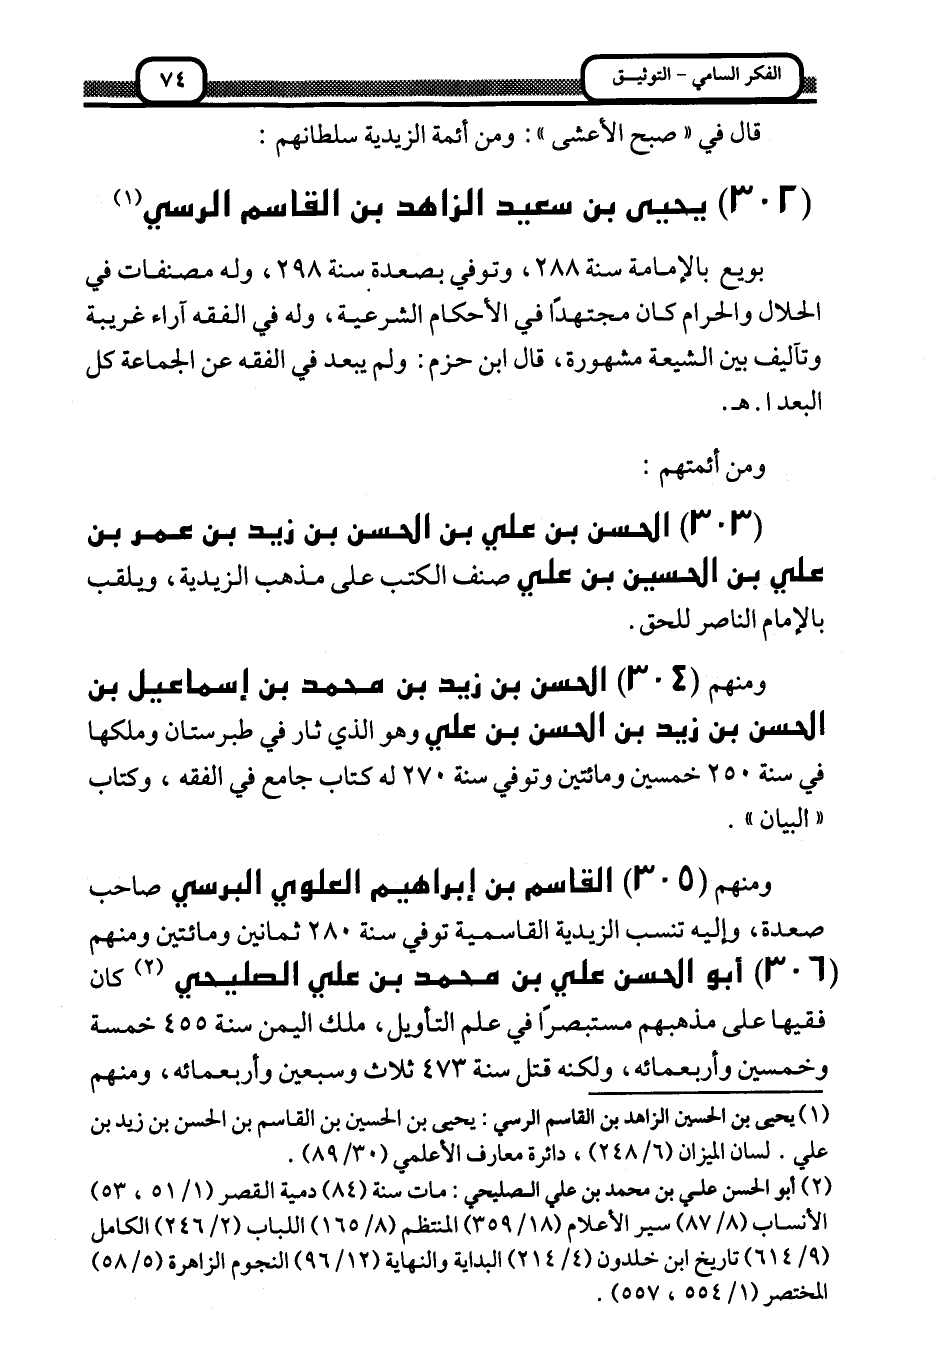 الفكر السامي - التوثيق
٧٤
قال في « صبح الأعشى »: ومن أئمة الزيدية سلطانهم :
(٣٠٢) يحيى بن سعيد الزاهد بن القاسم الرسي(١)
بويع بالإمامة سنة ٢٨٨، وتوفي بصعدة سنة ٢٩٨، وله مصنفات في
الحلال والحرام كان مجتهدًا في الأحكام الشرعية، وله في الفقه آراء غريبة
وتآليف بين الشيعة مشهورة، قال ابن حزم: ولم يبعد في الفقه عن الجماعة كل
البعد ا.هـ.
ومن أئمتهم :
(٣٠٣) الحسن بن علي بن الحسن بن زيد بن عمر بن
علي بن الحسين بن علي صنف الكتب على مذهب الزيدية، ويلقب
بالإمام الناصر للحق.
ومنهم (٣٠٤) الحسن بن زيد بن محمد بن إسماعيل بن
الحسن بن زيد بن الحسن بن علي وهو الذي ثار في طبرستان وملكها
في سنة ٢٥٠ خمسين ومائتين وتوفي سنة ٢٧٠ له كتاب جامع في الفقه ، وكتاب
« البيان » .
ومنهم (٣٠٥) القاسم بن إبراهيم العلوي البرسي صاحب
صعدة، وإليه تنسب الزيدية القاسمية توفي سنة ٢٨٠ ثمانين ومائتين ومنهم
(٣٠٦) أبو الحسن علي بن محمد بن علي الصليحي (٢) كان
فقيها على مذهبهم مستبصرًا في علم التأويل، ملك اليمن سنة ٤٥٥ خمسة
وخمسين وأربعمائه، ولكنه قتل سنة ٤٧٣ ثلاث وسبعين وأربعمائه، ومنهم
(١) يحيى بن الحسين الزاهد بن القاسم الرسي : يحيى بن الحسين بن القاسم بن الحسن بن زيد بن
علي . لسان الميزان (٦/ ٢٤٨) ، دائرة معارف الأعلمي (٣٠/ ٨٩) .
(٢) أبو الحسن علي بن محمد بن علي الصليحي : مات سنة (٨٤) دمية القصر (١/ ٥١ ، ٥٣)
الأنساب (٨/ ٨٧) سير الأعلام (١٨/ ٣٥٩) المنتظم (٨/ ١٦٥) اللباب (٢/ ٢٤٦) الكامل
(٩/ ٦١٤) تاريخ ابن خلدون (٤/ ٢١٤) البداية والنهاية (١٢/ ٩٦) النجوم الزاهرة (٥/ ٥٨)
المختصر (١/ ٥٥٤ ، ٥٥٧) .